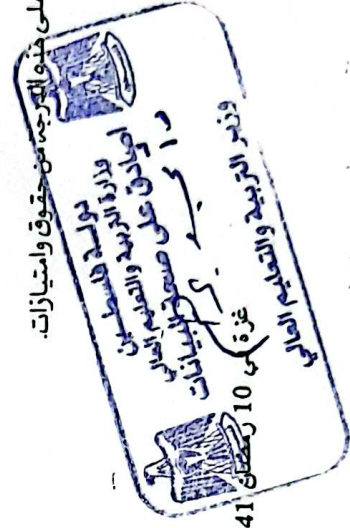 لى هذه الدرجة من حقوق وامتيازات.
دولة فلسطين
وزارة التربية والتعليم العالي
اصادق على صحة البيانات
غزة في 10 رمضان 41
وزير التربية والتعليم العالي